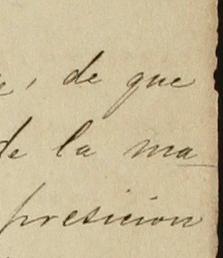 , de que
de la ma
presicion